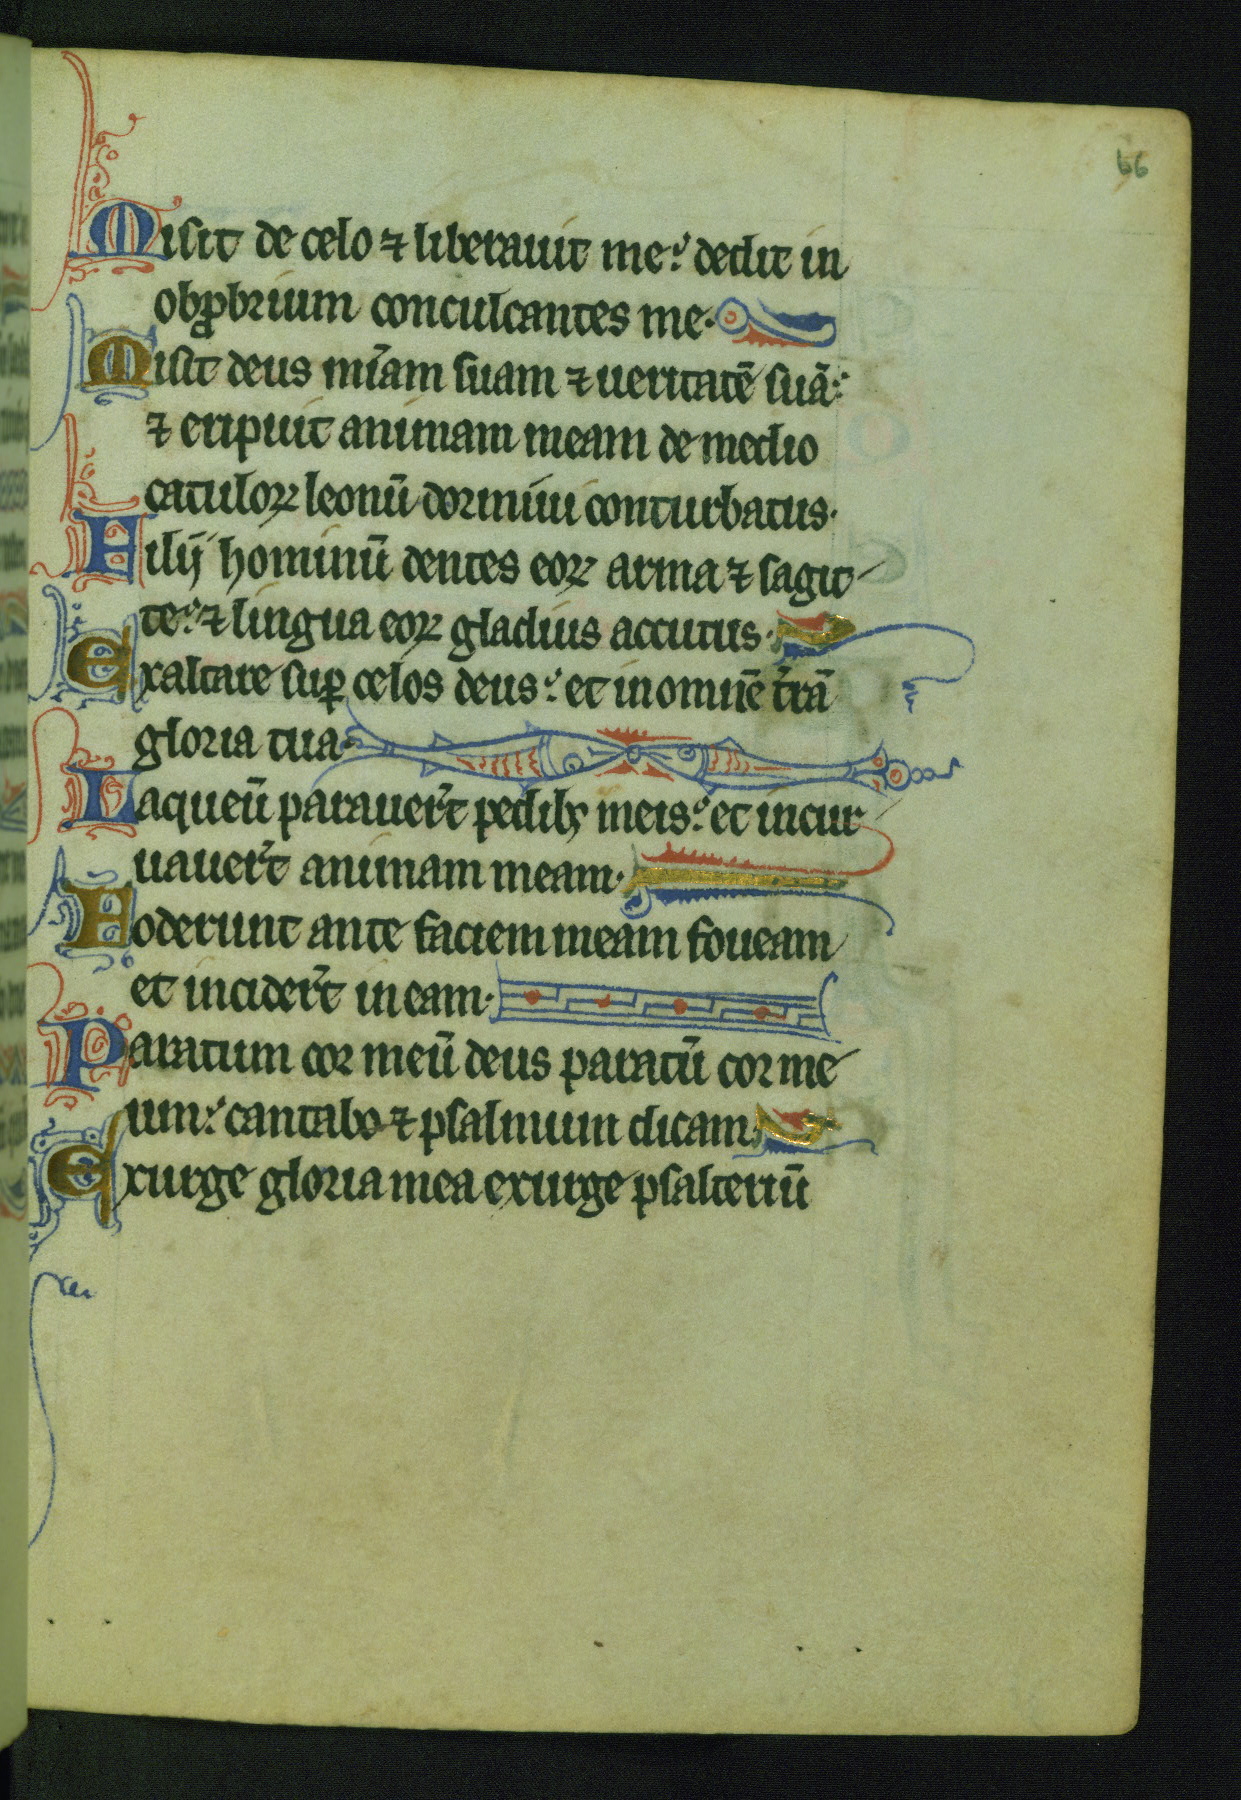 66
Misit de celo ⁊ liberauit me: dedit in
obꝓbrium conculcantes me.
Misit deus mīam suam ⁊ ueritatē suā:
⁊ eripuit animam meam de medio
catuloꝝ leonū dormiui conturbatus.
Filij hominū dentes eoꝝ arma ⁊ sagit
te: ⁊ lingua eoꝝ gladius accutus.
Exaltare suꝑ celos deus: et in omnē t̄rā
gloria tua.
Laqueū parauer̄t pedibꝫ meis: et incur
uauer̄t animam meam.
Foderunt ante faciem meam foueam
et incider̄t in eam.
Paratum cor meū deus paratū cor me
um: cantabo ⁊ psalmum dicam.
Exurge gloria mea exurge psalteriū